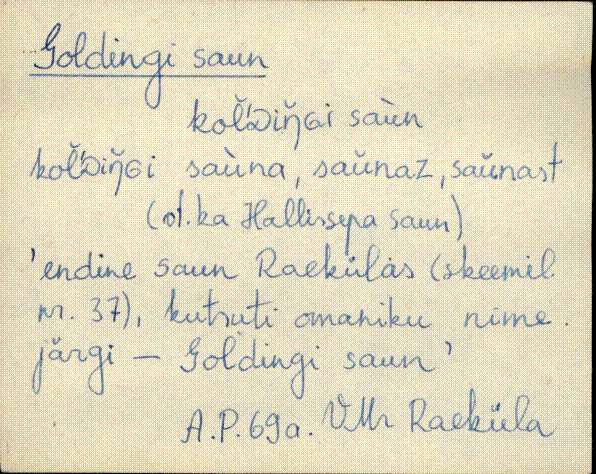 Goldingi saun
kol̆'ᴅiŋ̆ɢi saùn
kol̆'ᴅiŋ̆ɢi saùna, saŭnaz, saŭnast
(vt. ka Hallissepa saun)
'endine saun Raekülas (skeemil
nr. 37), kutsuti omaniku nime
järgi – Gol'dingi saun'
A.P. 69a. VMr Raeküla